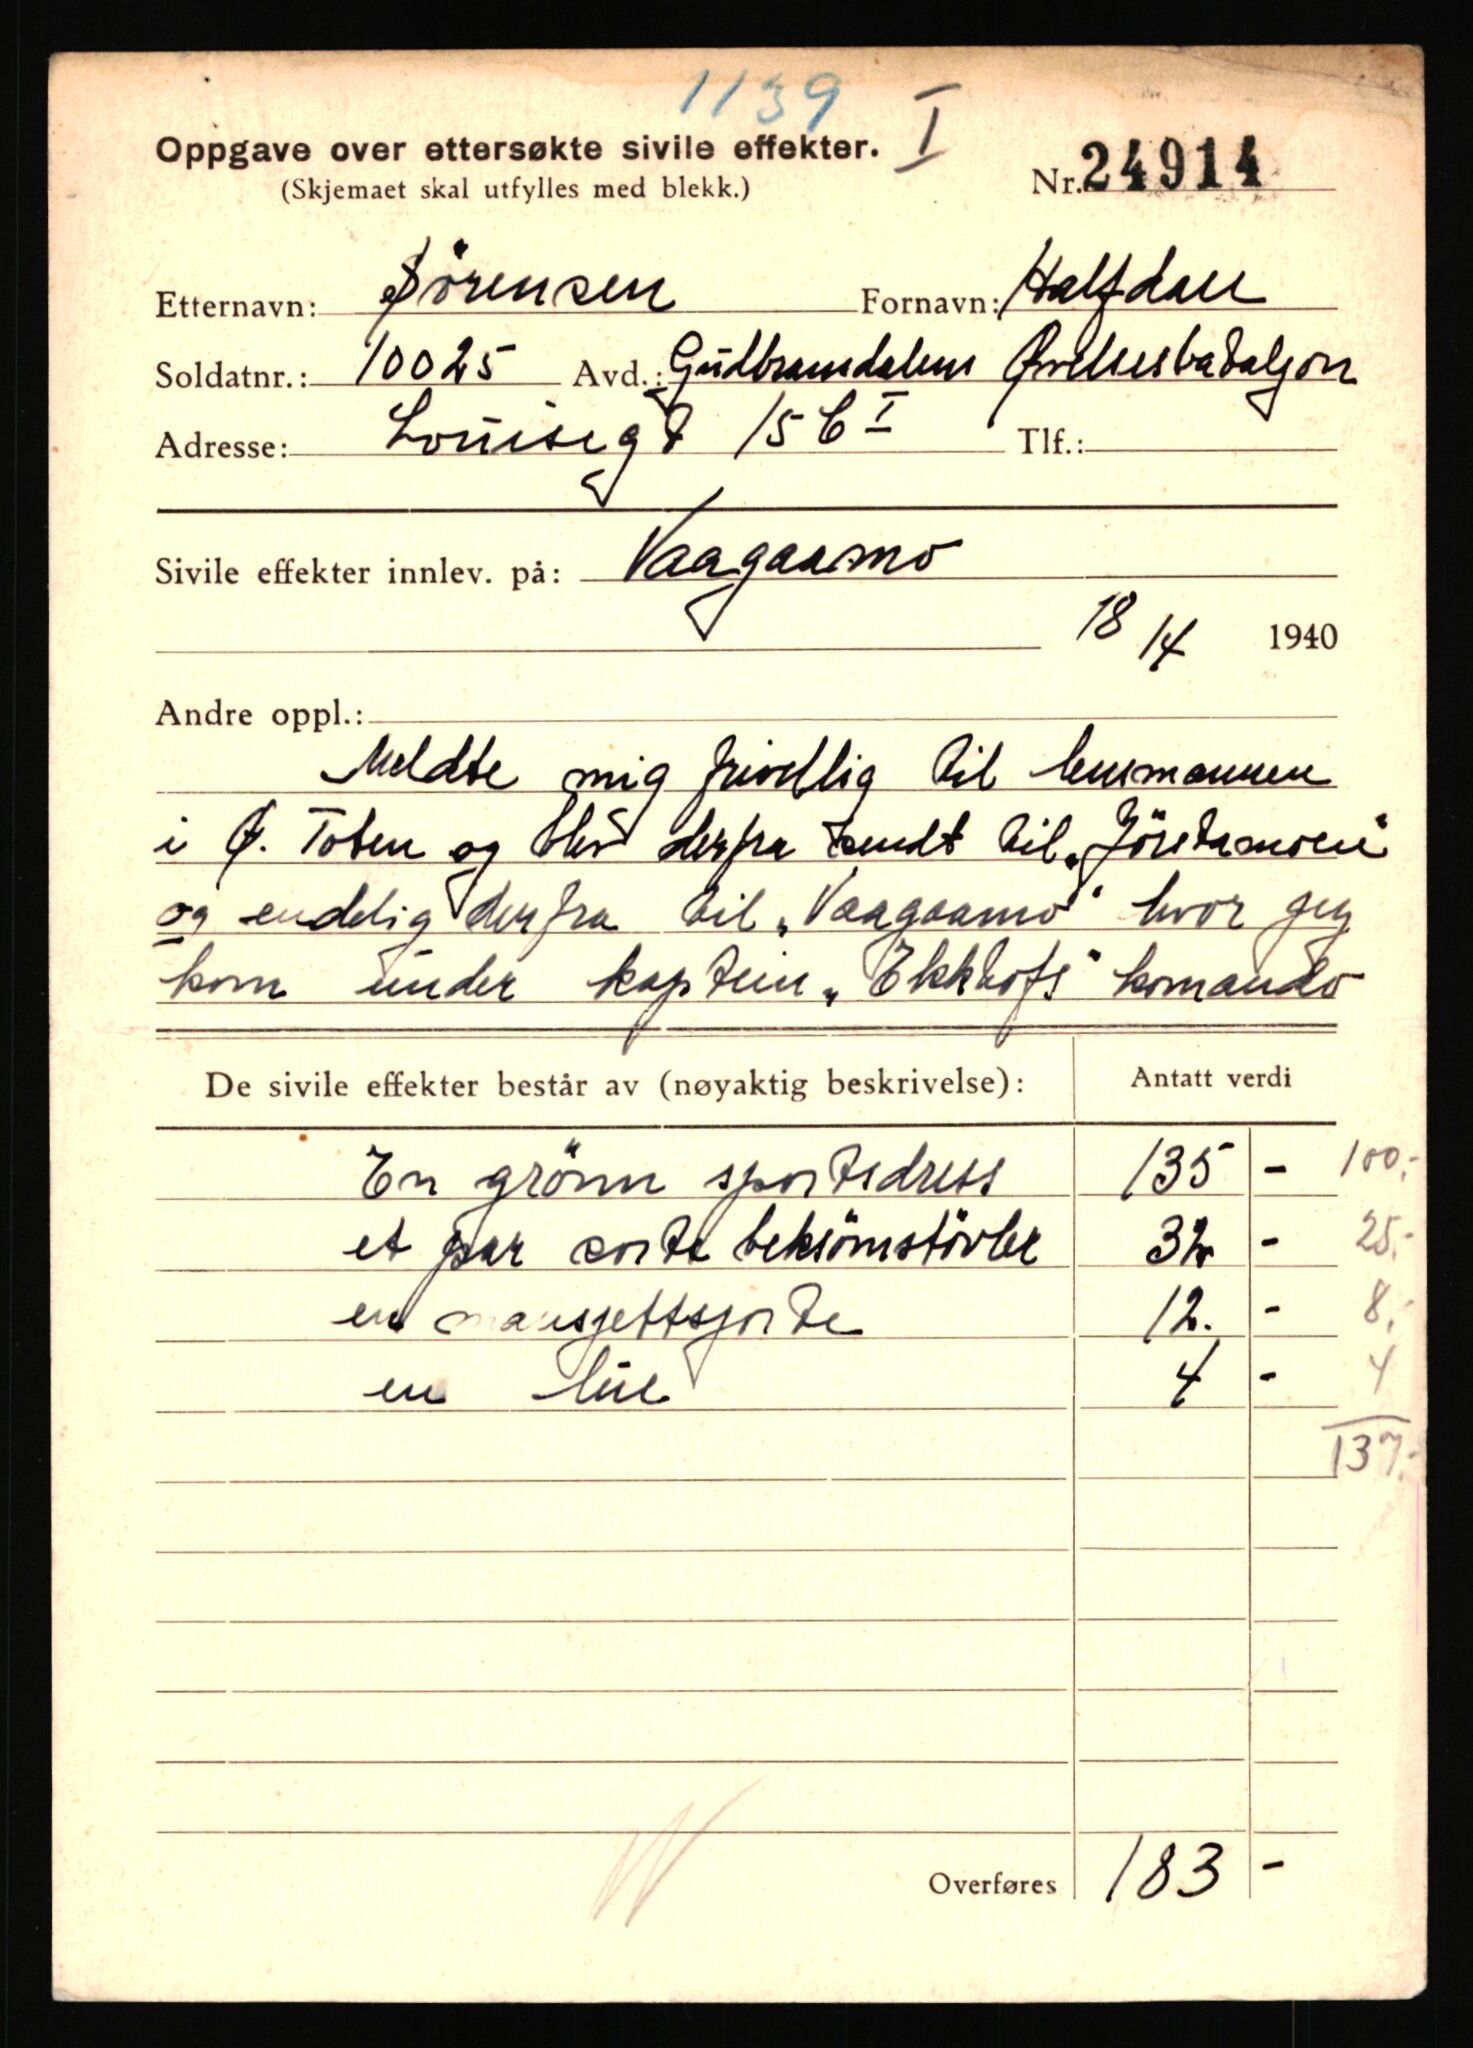 1139 I
Oppgave over ettersøkte sivile effekter.
(Skjemaet skal utfylles med blekk.)
Nr. 24914
Etternavn: Sörensen Fornavn: Halfdan
Soldatnr.: 10025 Avd.: Gudbrandalens Øvelsesbataljon
Adresse: Louisegt 15 C I Tlf.:
Sivile effekter innlev. på: Vaagaamo
18/4 1940
Andre oppl.:
Meldte mig frivellig til lensmannen
i Ø. Toten og blev derfra sendt til „Jörstamoen“
og endelig derfra til „Vaagaamo“ hvor jeg
kom under kaptein „Ekkhofs“ komando
De sivile effekter består av (nøyaktig beskrivelse): Antatt verdi
En grönn sportsdress 135 - 100,-
et par sorte beksömstövler 32 - 25,-
en mansjettsjorte 12. - 8,-
en lue 4 - 4
137,-
Overføres 183 -